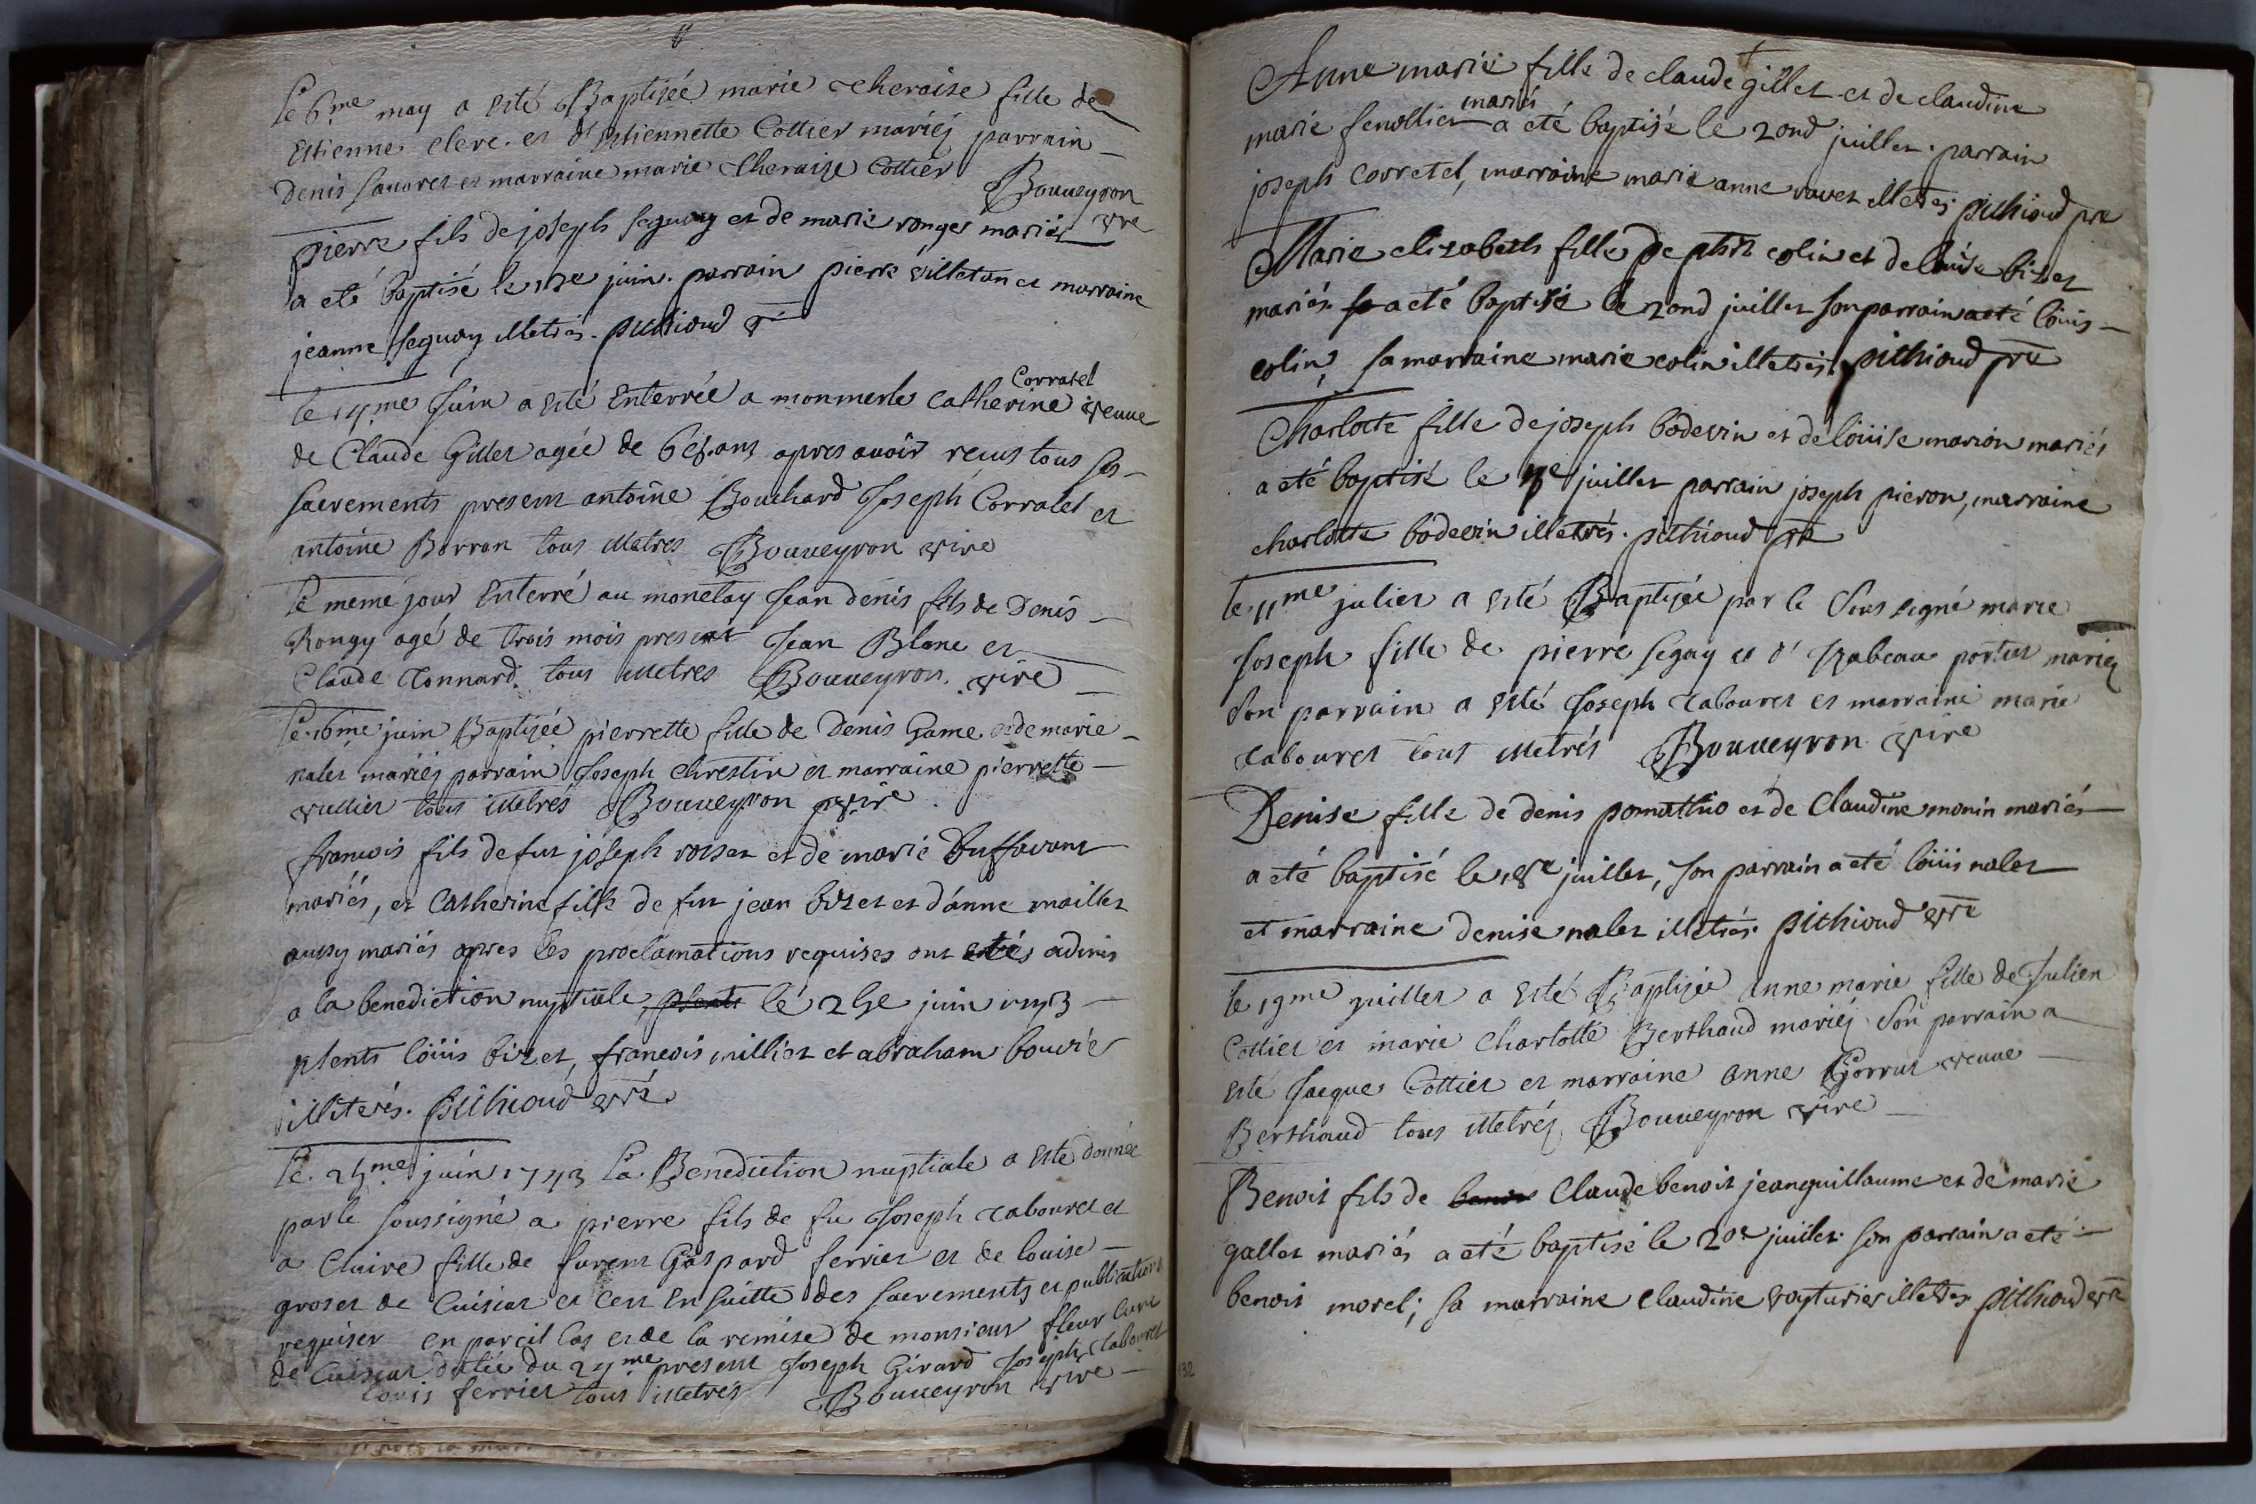 Le 6me may a esté Baptisée marie theraise fille de
Estienne Clerc et d'Estiennette Cottier mariéz parrain
Denis Sauvret et marraine marie Theraise Cottier Bouueyron vire
pierre fils de joseph seguoy et de marie ronget mariés
a eté baptisé le juin. parrain pierre villetan et marraine
jeanne seguoy illetrés. pithioud vre
Le 14me Juin a esté Enterrée a monmerle Catherine Corratel veuue
de Claude Gillet agée de ans apres avoir recus tous ses
sacrements present antoine Bouchard Joseph Corratel et
antoine Borron tous illetres Bouueyron vire
Le meme jour Enterré au monetay Jean denis fils de Denis
Rongy agé de trois mois present Jean Blanc et
Claude Tonnard tous illetres Bouueyron vire
Le 16me juin Baptizée pierrette fille de Denis Game et de marie
nalet mariéz parrain Joseph Chrestin et marraine pierrette
vullier tous illetrés Bouueyron vire
francois fils de fut joseph roiset et de marie Duffavant
mariés, et Catherine fille de fut jean bizet et d'anne maillet
aussy mariés apres les proclamations requises ont estés admis
a la benediction nuptiale le 25e juin 1743
psents löüis bizet, francois milliet et abraham bouvier
illiterés. pithioud vre
Le 25me juin 1743 la Benediction nuptiale a este donnée
par le soussigné a pierre fils de fu Joseph tabouret et
a Claire fille de furent Gaspard ferrier et de louise
groset de Cuisiat et cest en suitte des sacrements et publications
requises en pareil cas et de la remise de monsieur fleur Curé
de Cuisiat datée du 24me present Joseph Girard Joseph tabouret
Louis ferrier tous illetrés Bouueyron vire
Anne marie fille de claude gillet et de claudine
marie fenolliet mariés a eté baptisé le 2ond juillet. parrain
joseph corretel, marraine marie anne ravet illetrés pithioud pre
Marie elizabeth fille de colin et de löuise bizet
mariés a eté baptisé le 2ond juillet son parrain a eté löuis
colin, sa marraine marie colin illetrés. pithioud pre
Charlotte fille de joseph bodevin et de löuise marion mariés
a eté baptisé le 7e juillet parrain joseph pieron, marraine
charlotte bodevin illetrés. pithioud pre
Le 11me julier a esté Baptizée par le Sous signé marie
Joseph fille de pierre segay et d'Izabeau portet mariez
Son parrain a esté Joseph tabouret et marraine marie
tabouret tous illetrés Bouueyron vire
Denise fille de denis pomathio et de Claudine monin mariés
a eté baptisé le juillet, son parrain a eté löüis nalet
et marraine denise nalet illetrés. pithioud vre
Le 19me juillet a esté Baptizée anne marie fille de Julien
Cottier et marie Charlotte Berthaud mariéz Son parrain a
esté Jacque Cottier et marraine anne veuue
Berthaud tous illetréz Bouueyron vire
Benoit fils de Claude benoit jeanguillaume et de marie
gallet mariés a eté baptisé le 20e juillet. son parrain a eté
benoit morel; sa marraine claudine voyturier illetrés pithioud vre
132